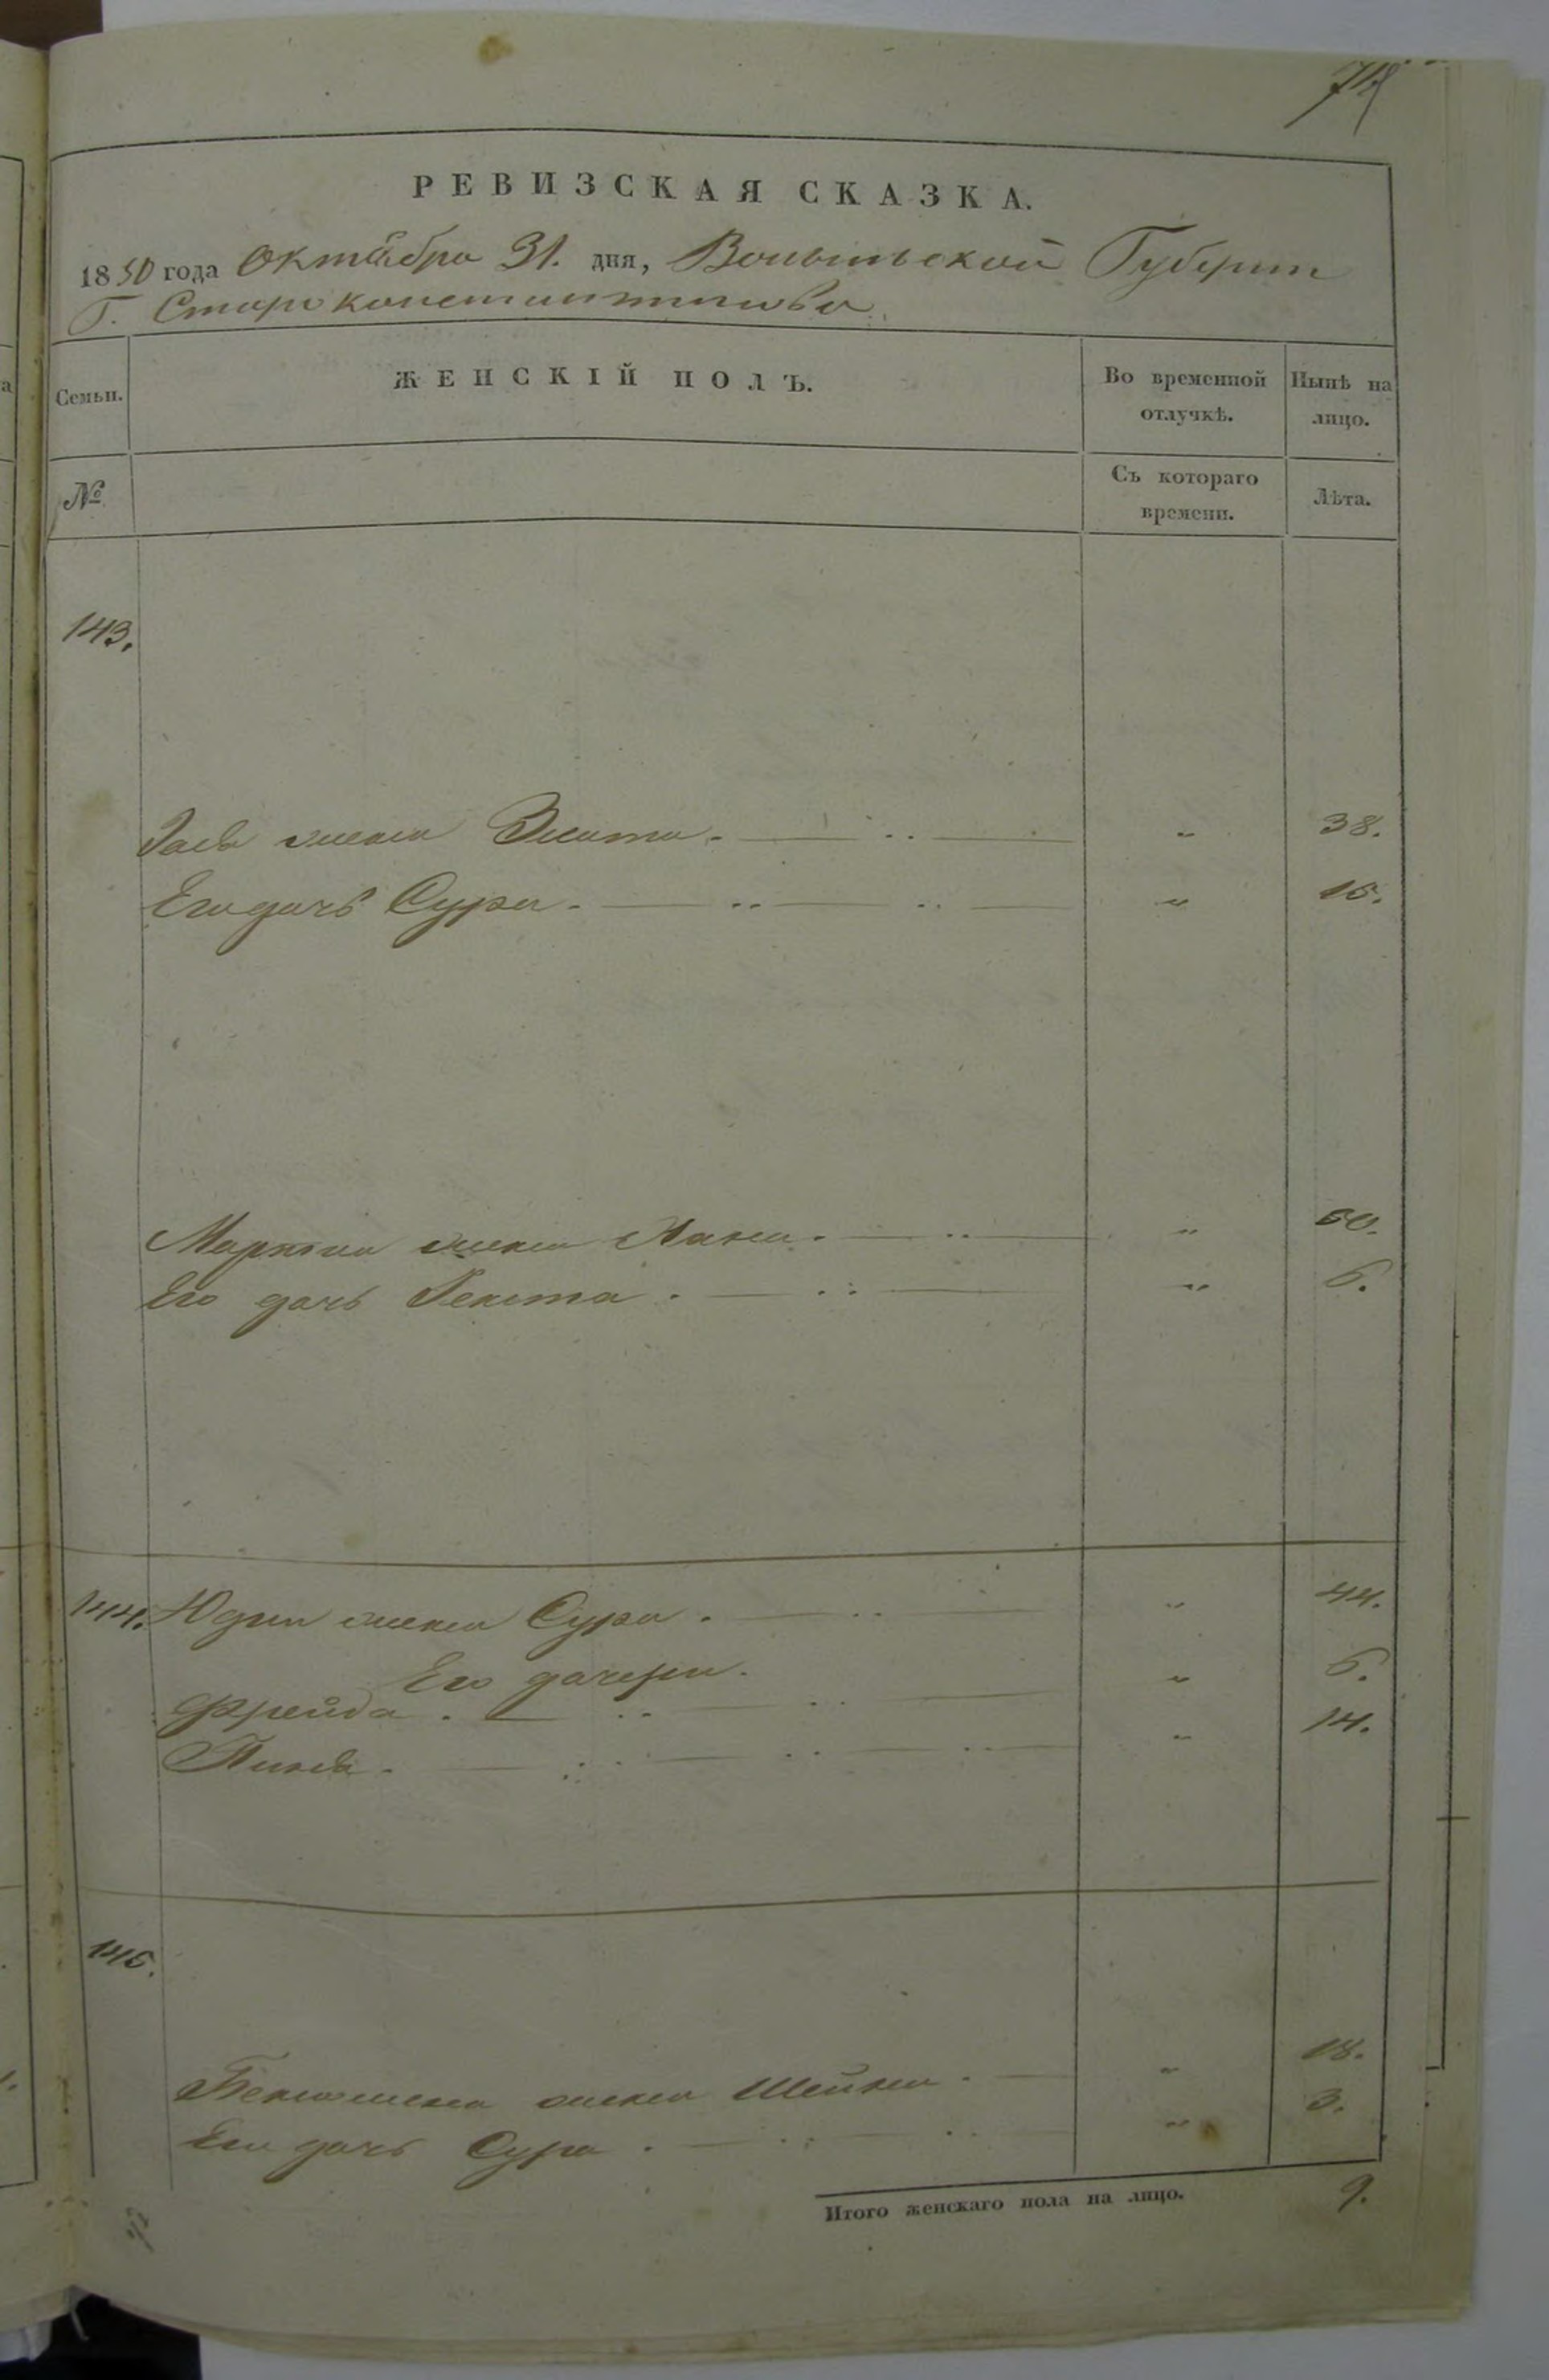 РЕВИЗСКАЯ СКАЗКА.
1850 года Октября 31. дня, Волынской Губернии
Г. Староконстантинова
Семьи.
ЖЕНСКІЙ ПОЛЪ.
Во временной
отлучкѣ.
Нынѣ на
лицо.
№
Съ котораго
времени.
Лѣта.
143.
жена Злата. " 38.
Его дочь Сура. "
жена Хана. "
Его дочь "
144. Юдки жена Сура. " 44.
Его дочери.
Фрейда. "
" 14.
145.
жена Шейна. " 18.
Его дочь Сура. " 3.
Итого женскаго пола на лицо. 9.